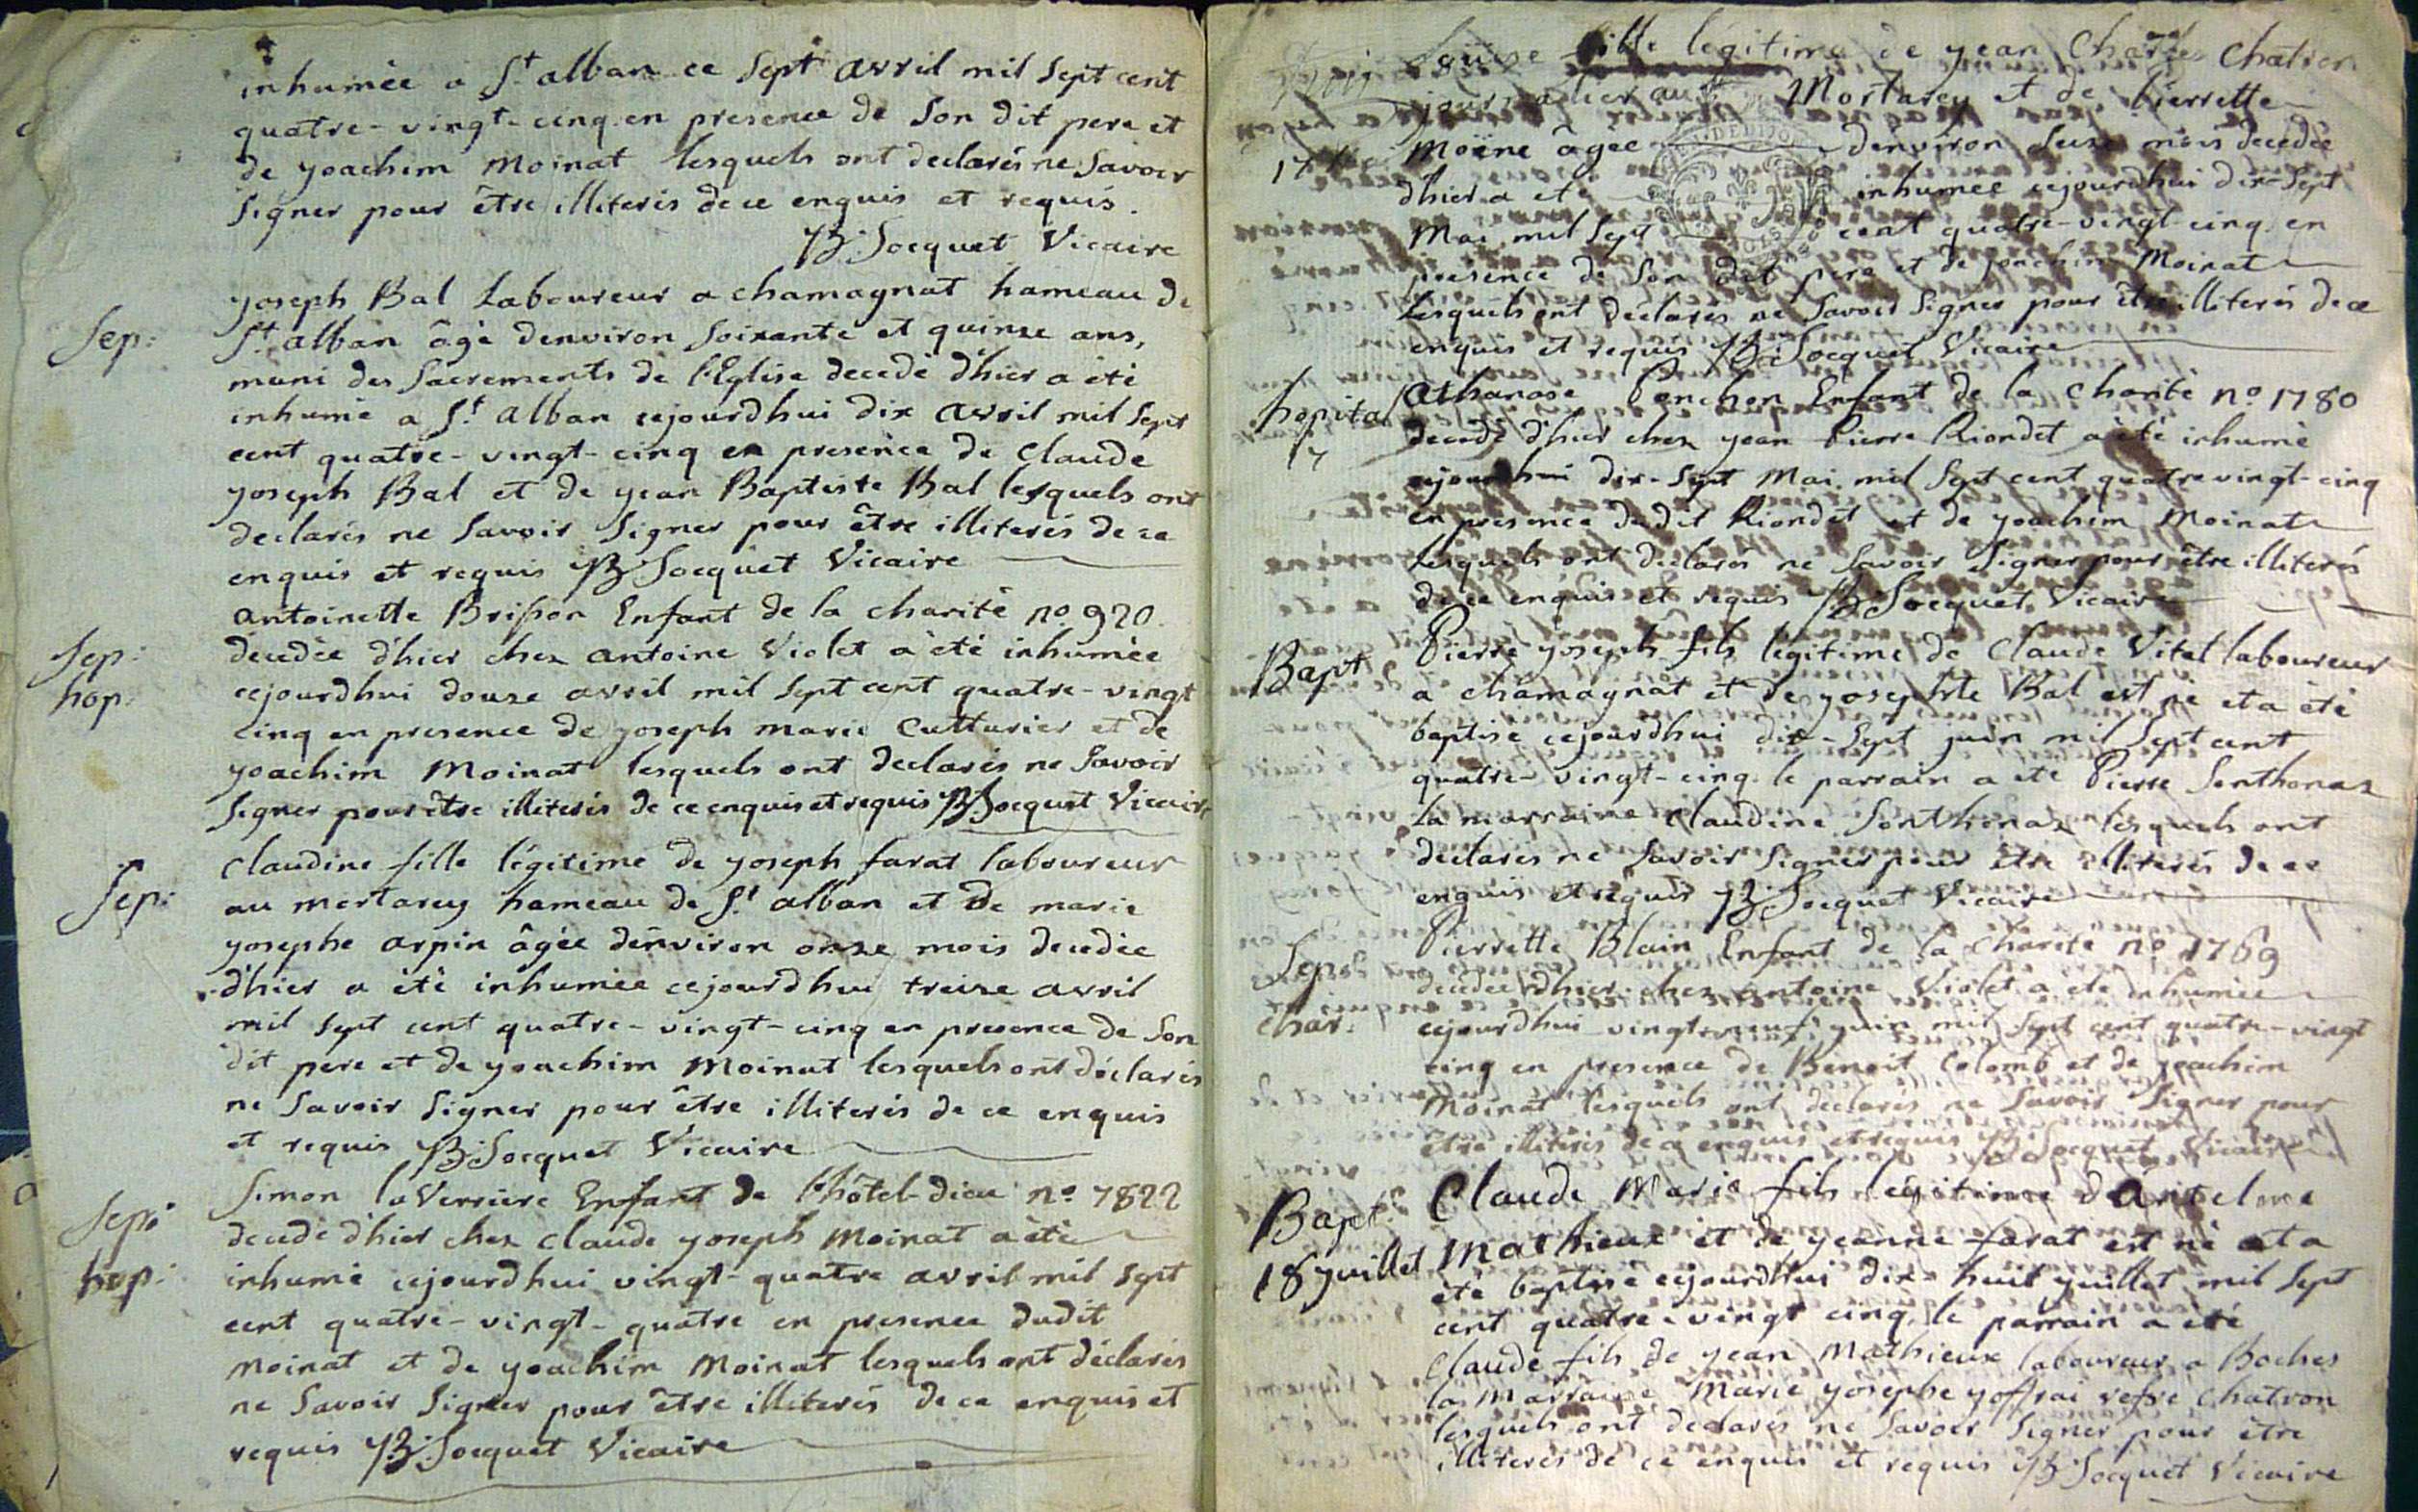 inhumée a St alban ce sept avril mil sept cent
quatre-vingt-cinq en presence de son dit pere et
de yoachim Moinat lesquels ont declarés ne savoir
signer pour être illiterés de ce enquis et requis.
JB: Socquet Vicaire
Sep:
yoseph Bal Laboureur a chamagnat hameau de
St alban âgé denviron soixante et quinze ans,
muni des sacrements de l'Eglise decedé d'hier a été
inhumé a St alban cejourdhui dix avril mil sept
cent quatre-vingt-cinq en presence de Claude
yoseph Bal et de yean Baptiste Bal lesquels ont
declarés ne savoir signer pour être illiterés de ce
enquis et requis JB Socquet Vicaire
Sep:
hop:
antoinette Brisson Enfant de la charité no 920.
décedée d'hier chez antoine Violet a été inhumée
cejourdhui douze avril mil sept cent quatre-vingt
cinq en presence de yoseph marie Cutturier et de
yoachim Moinat lesquels ont declarés ne savoir
signer pour être illiterés de ce enquis et requis JB Socquet Vicaire
Sep:
Claudine fille légitime de yoseph farat laboureur
au mortarey hameau de St alban et de marie
yosephe arpin âgée denviron onze mois decedée
d'hier a été inhumée cejourdhui treize avril
mil sept cent quatre-vingt-cinq en presence de son
dit pere et de yoachim Moinat lesquels ont déclarés
ne savoir signer pour être illiterés de ce enquis
et requis JB: Socquet Vicaire
Sep:
hop:
Simon laVerriere Enfant de l'hôtel-dieu no 7822
decedé d'hier chez claude yoseph Moinat a été
inhumé cejourdhui vingt-quatre avril mil sept
cent quatre-vingt-quatre en presence dudit
Moinat et de yoachim Moinat lesquels ont déclarés
ne savoir signer pour être illiterés de ce enquis et
requis JB: Socquet Vicaire
fille légitime de yean Charles Chatier
journalier au Mortarey et de Pierrette
17
Moine âgée denviron seize mois decedée
d'hier a eté inhumée cejourdhui dix-sept
Mai mil sept cent quatre-vingt-cinq en
presence de son dit pere et de yoachim Moinat
Lesquels ont declarés ne savoir signer pour être illiterés de ce
enquis et requis JB: Socquet Vicaire
hopital
17
athanase Ponchon Enfant de la charité no 1780
decedé d'hier chez yean Pierre Riondet a été inhumé
cejourdhui dix-sept Mai mil sept cent quatre vingt-cinq
en presence dudit Riondet et de yoachim Moinat
Lesquels ont declarés ne savoir signer pour être illiterés
de ce enquis et requis JB Socquet Vicaire
Bapt
Pierre yoseph fils légitime de Claude Vitet laboureur
a chamagnat et de yosephte Bal est né et a été
baptisé cejourdhui dix-sept juin mil sept cent
quatre-vingt-cinq. le parrain a eté Pierre Sonthonax
la marraine Claudine Sonthonax lesquels ont
declarés ne savoir signer pour être illiterés de ce
enquis et requis JB: Socquet Vicaire
Sep
char:
Pierrette Blain Enfant de la charité no 1769
decedée d'hier chez antoine Violet a été inhumée
cejourdhui vingt-neuf yuin mil sept cent quatre-vingt
cinq en presence de Benoit Colomb et de yoachim
Moinat lesquels ont declarés ne savoir signer pour
être illiterés de ce enquis et requis JB Socquet Vicaire
Bapt.
18 yuillet
Claude Marie fils légitime d'Antelme
Mathieux et de yeanne farat est né et a
été baptisé cejourdhui dix-huit yuillet mil sept
cent quatre-vingt cinq. le parrain a été
Claude fils de yean Mathieux laboureur a Boches
la Marraine Marie yosephe yoffrai vefve Chatron
lesquels ont declarés ne savoir signer pour être
illiterés de ce enquis et requis JB Socquet Vicaire